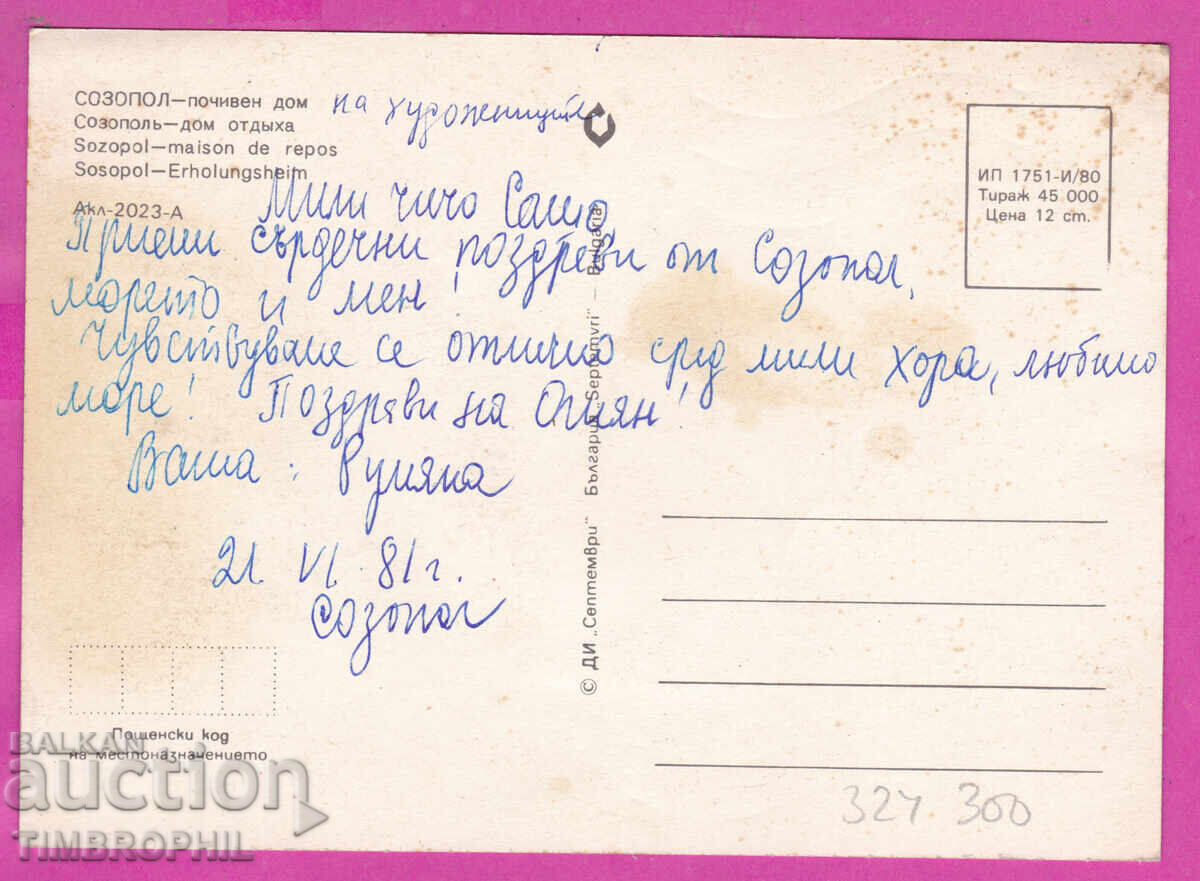 СОЗОПОЛ—почивен дом на художниците
Созополь—дом отдыха
Sozopol—maison de repos
Sosopol—Erholungsheim
Акл-2023-А
Мили чичо Сашо,
Приеми сърдечни поздрави от Созопол,
морето и мен!
Чувствуваме се отлично сред мили хора, любимо
море! Поздрави на Огнян!
Ваша: Румяна
21. VI. 81 г.
Созопол
Пощенски код
на местоназначението
© ДИ „Септември" България „Septemvri" — Bulgaria
ИП 1751-И/80
Тираж 45 000
Цена 12 ст.
324 300
BALKAN
auction
TIMBROPHIL